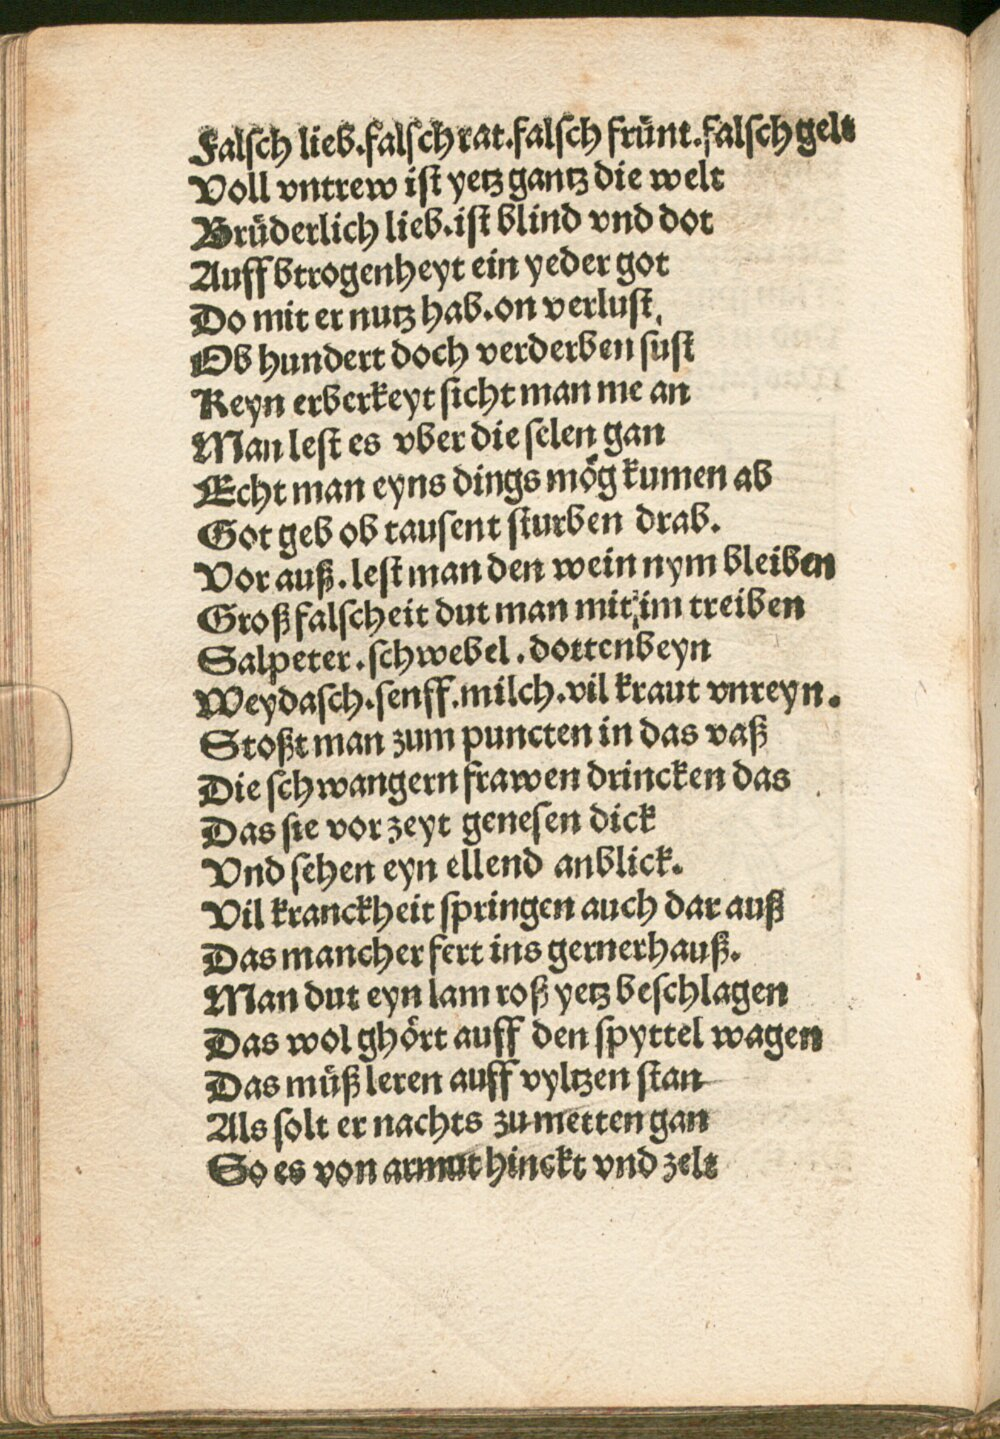 Falſch lieb.falſch rat.falſch frünt.falſch gelt
Voll vntrew iſt yetz gantz die welt
Brüderlich lieb.iſt blind vnd dot
Auff btrogenheyt ein yeder got
Do mit er nutz hab.on verluſt.
Ob hundert doch verderben ſuſt
Keyn erberkeyt ſicht man me an
Man leſt es vber die ſelen gan
Echt man eyns dings mög kumen ab
Got geb ob tauſent ſturben drab.
Vor auß.leſt man den wein nym bleiben
Groß falſcheit dut man mit im treiben
Salpeter.ſchwebel.dottenbeyn
Weydaſch.ſenff.milch.vil kraut vnreyn.
Stoßt man zum puncten in das vaß
Die ſchwangern frawen drincken das
Das ſie vor zeyt geneſen dick
Vnd ſehen eyn ellend anblick.
Vil kranckheit ſpringen auch dar auß
Das mancher fert ins gernerhauß.
Man dut eyn lam roß yetz beſchlagen
Das wol ghört auff den ſpyttel wagen
Das müß leren auff vyltzen ſtan
Als ſolt er nachts zu metten gan
So es von armut hinckt vnd zelt